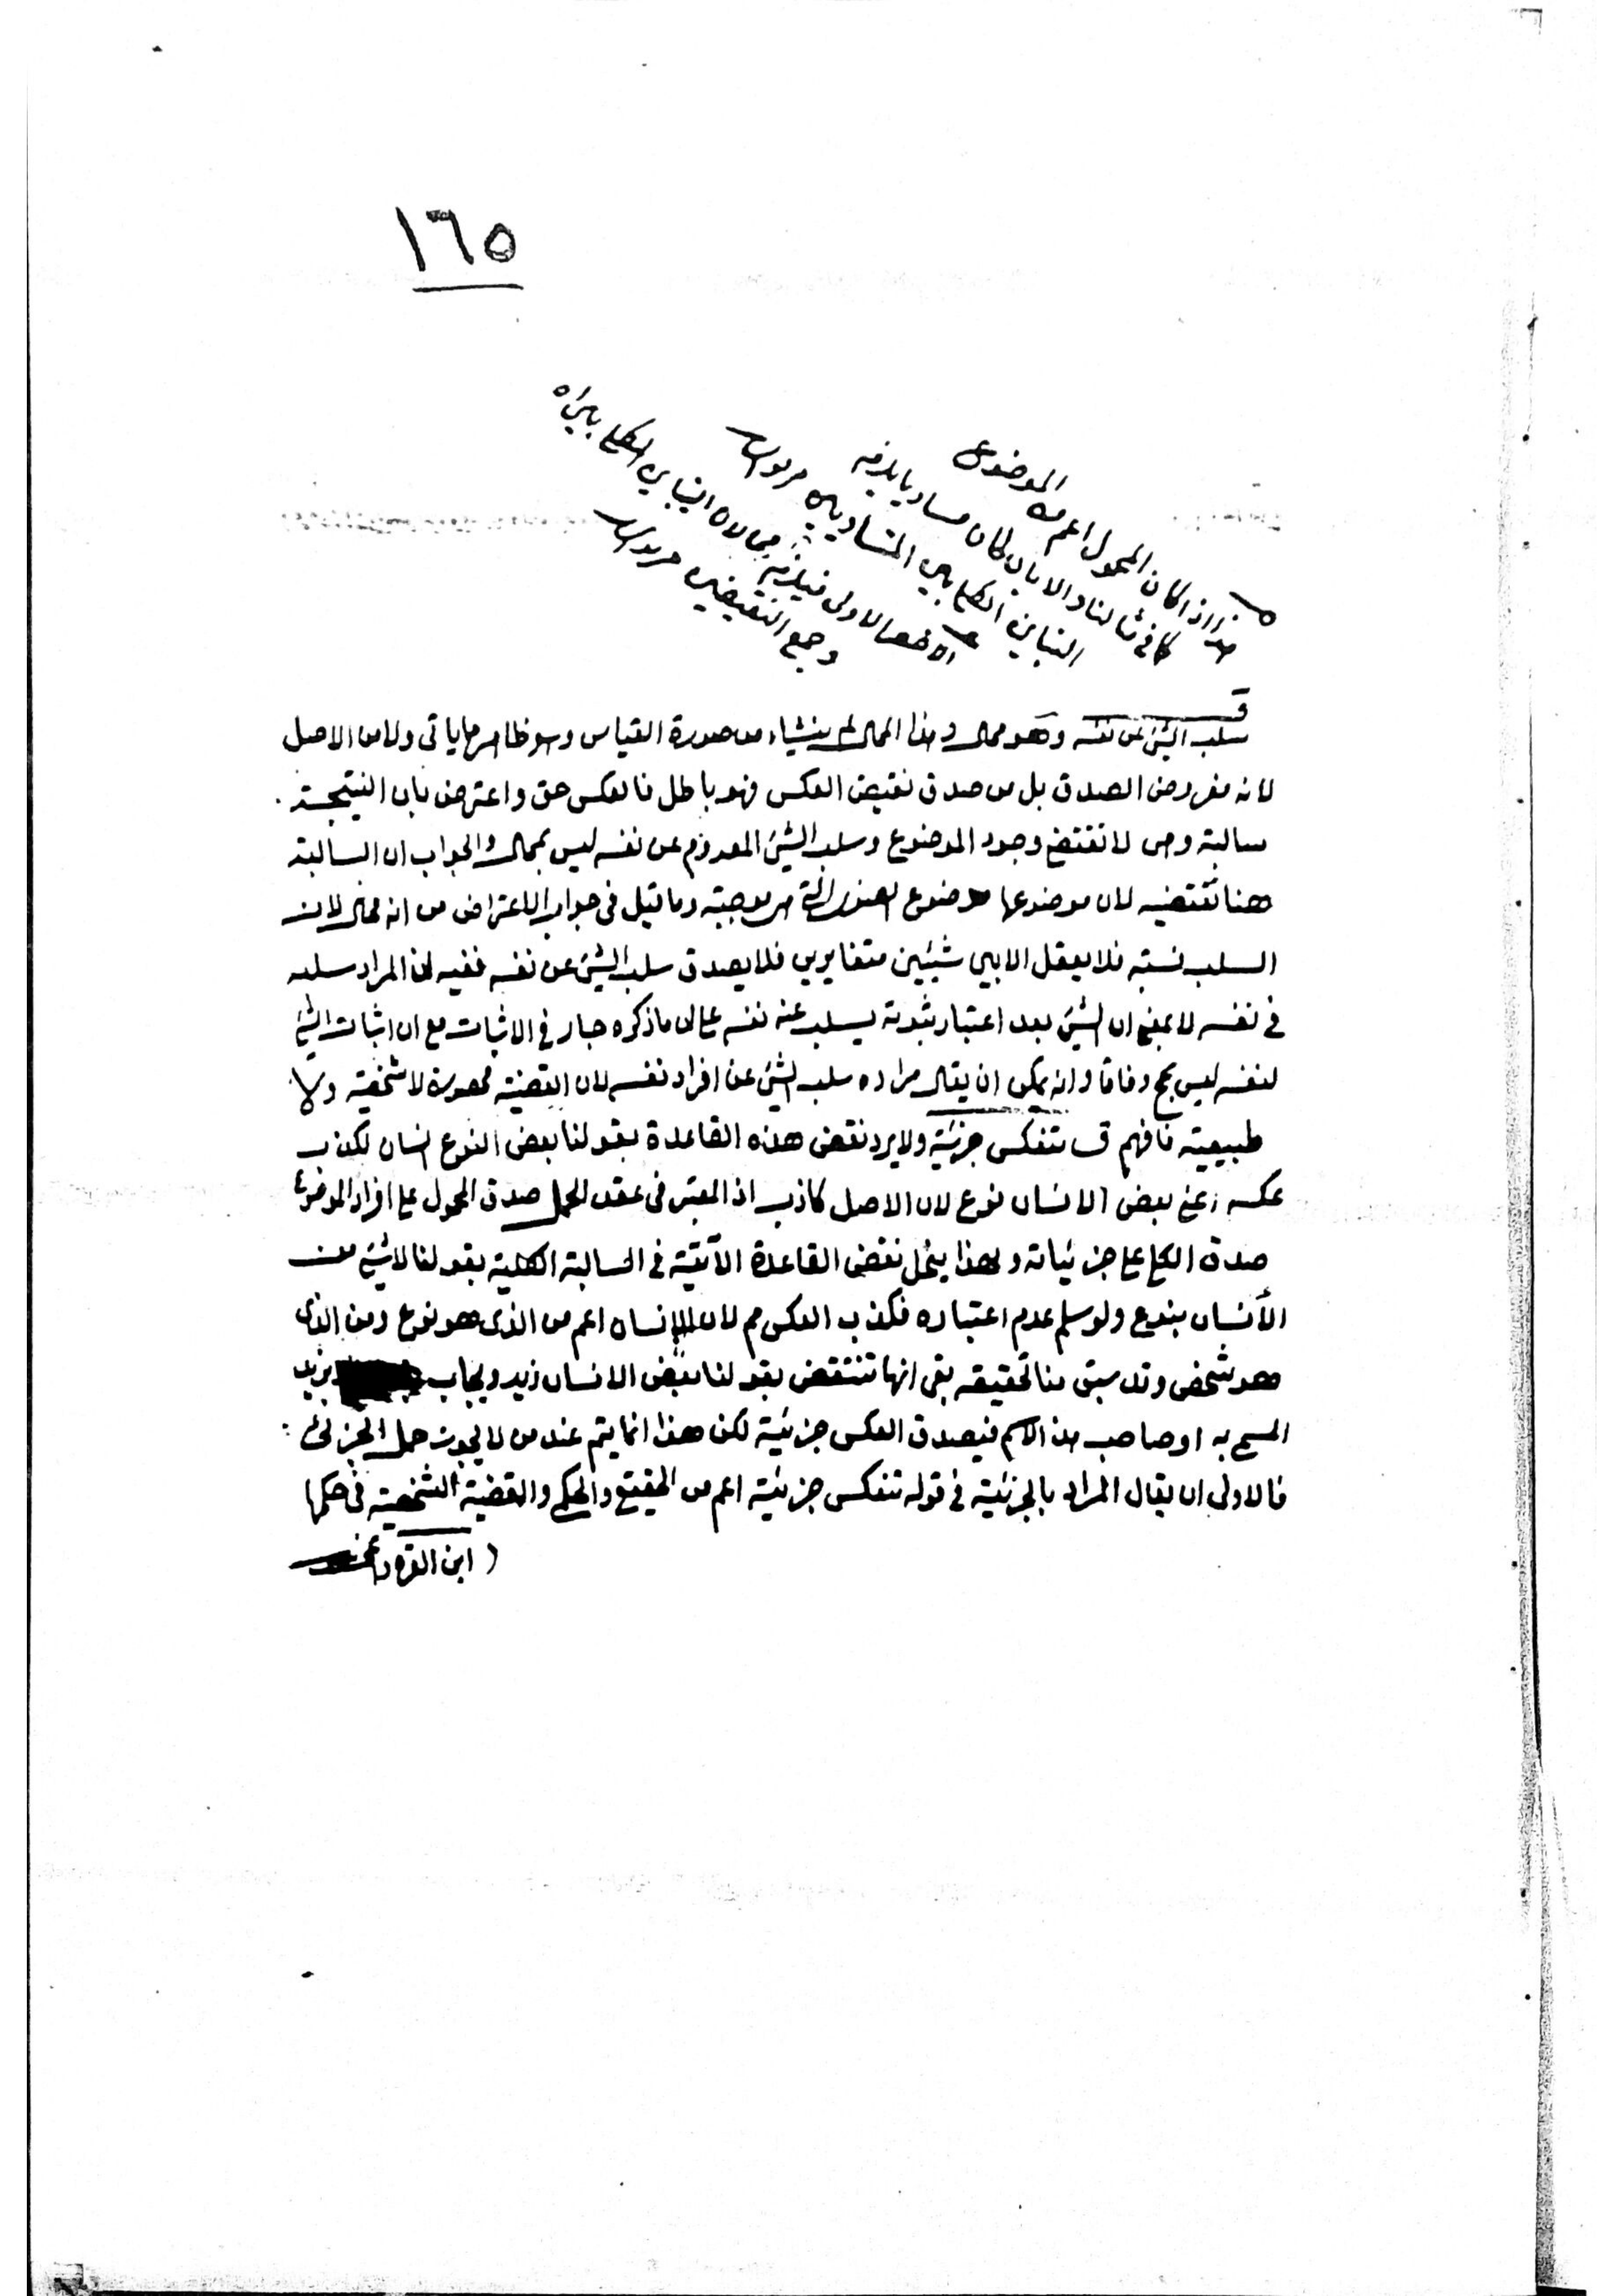 ١٦٥
هذا اذا كان المحمول اعم من الموضوع
كما في مثالنا والا بان كان مساويا يلزمه
التباين الكلي بين المتساويين
الاخص الاولى فيلزمه لان التباين الكلي
وجمع النقيضين
ق
سلب الشيء عن نفسه وهو محال وهذا المحال لم ينشاء من صورة القياس وهو ظاهر مما ياتى ولا من الاصل
لانه مفروض الصدق بل من صدق نقيض العكس فهو باطل فالعكس حق واعترض بان النتيجة
سالبة وهى لا تقتضي وجود الموضوع وسلب الشيء المعدوم عن نفسه ليس بمحال والجواب ان السالبة
هنا تقتضيه لان موضوعها موضوع الصغرى التى هى موجبة وما قيل فى جواب الاعتراض من انه محال لان
السلب نسبة فلا يعقل الا بين شيئين متغايرين فلا يصدق سلب الشيء عن نفسه ففيه ان المراد سلبه
فى نفسه لا بمعنى ان الشيء بعد اعتبار ثبوته يسلب عنه نفسه على ان ما ذكره جار في الاثبات مع ان اثبات الشيء
لنفسه ليس بمح وفاقا وانه يمكن ان يقال مراده سلب الشيء عن افراد نفسه لان القضية محصورة لا شخصية ولا
طبيعية فافهم ق تنعكس جزئية ولا يرد نقض هذه القاعدة بقولنا بعض النوع انسان لكذب
عكسه اعني بعض الانسان نوع لان الاصل كاذب اذ المعتبر فى عقد الحمل صدق المحمول على افراد الموضوع
صدق الكلي على جزئياته وبهذا ينحل نقض القاعدة الآتية فى السالبة الكلية بقولنا لا شيء من
الأنسان بنوع ولو سلم عدم اعتباره فكذب العكس مم لان الانسان اعم من الذى هو نوع ومن الذى
هو شخص وقد سبق منا تحقيقه بقى انها تنتقض بقولنا بعض الانسان زيد ويجاب بزيد
المسمى به او صاحب هذا الاسم فيصدق العكس جزئية لكن هذا انما يتم عند من لا يجوز حمل الجزئي
فالاولى ان يقال المراد بالجزئية فى قوله تنعكس جزئية اعم من الحقيقي والحكمي والقضية الشخصية فى حكمها
( ابن القره داغي